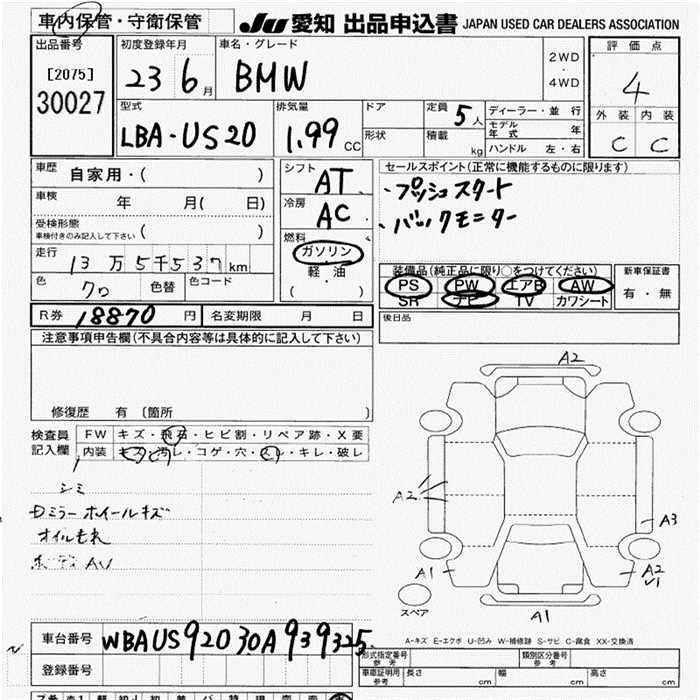 車内保管・守衛保管 JU 愛知 出品申込書 JAPAN USED CAR DEALERS ASSOCIATION
出品番号 初度登録年月 車名・グレード 2WD・4WD 評価点
[2075] 23 6月 BMW 4
30027 外装 内装
型式 排気量 ドア 定員 5人 ディーラー・並行 C C
LBA-US20 1.99CC 形状 積載 kg モデル年式 年
ハンドル 左・右
車歴 自家用・( ) シフト AT セールスポイント(正常に機能するものに限ります)
車検 年 月( 日) 冷房 AC ・プッシュスタート
受検形態 ・バックモニター
車検付きのみ記入して下さい ( ) 燃料
走行 13万5千537km ガソリン 装備品(純正品に限り○をつけてください) 新車保証書
色 クロ 色替 色コード 軽・油 PS PW エアB AW 有・無
・( ) SR ナビ TV カワシート
R券 18870円 名変期限 月 日 後日品
注意事項申告欄(不具合内容等は具体的に記入して下さい)
修復歴 有 〔箇所 〕
検査員 FW キズ・飛石・ヒビ割・リペア跡・X要
記入欄 内装 キズ・汚レ・コゲ・穴・スレ・キレ・破レ
シミ
Dミラー ホイールキズ
オイルもれ
A2
A2
A3
A1
A2
A1
スペア
A-キズ E-エクボ U-凹み W-補修跡 S-サビ C-腐食 XX-交換済
車台番号 WBAUS92030A939325
形式指定番号 参考 類別区分番号 参考
登録番号 車庫証明用 参考 長さ cm 幅 cm 高さ cm